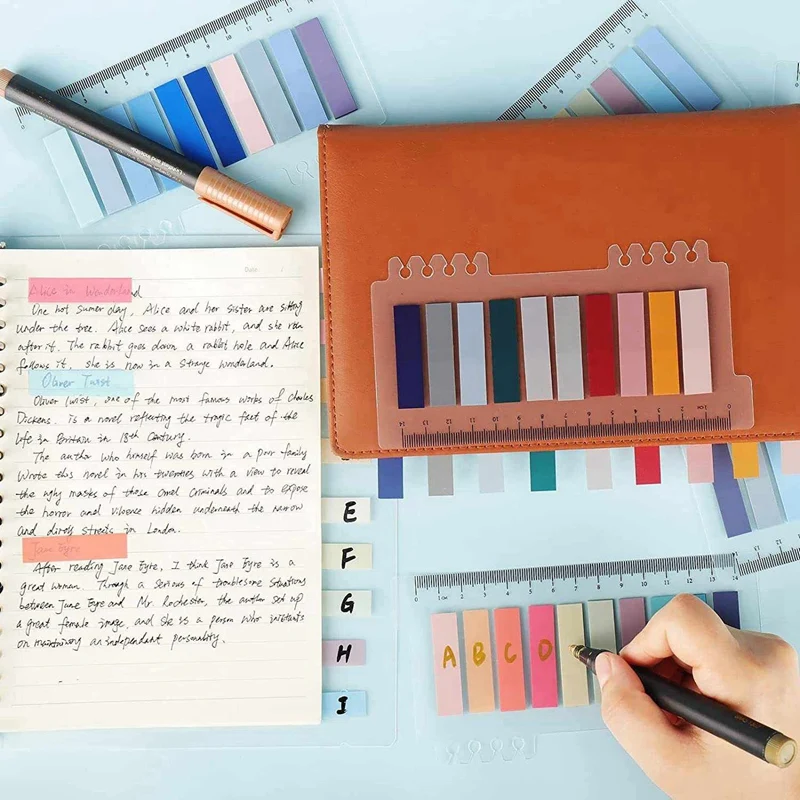 Date:
Alice in Wonderland
One hot sumer day, Alice and her sister are sitting
under the tree. Alice sees a white rabbit, and she run
after it. The rabbit goes down a rabbit hole and Alice
follows it, she is now in a strage wonderland.
Oliver Twist
Oliver Twist, one of the most famous works of Charles
Dickens. is a novel reflecting the tragic fact of the
life in Britain in 18th Century.
The author who himself was born in a poor family
wrote this novel in his twenties with a view to reveal
the ugly masks of those cruel criminals and to expose
the horror and viloence hidden underneath the narrow
and dirdy streets in London.
Jane Eyre
After reading Jane Eyre, I think Jane Eyre is a
great woman. Through a serious of troublesome situations
between Jane Eyre and Mr. Rochester, the author set up
a great female image, and she is a person who insistants
on maintaining an independant personality.
E
F
G
H
I
14 13 12 11 10 9 8 7 6 5 4 3 2 1CM 0
0 1CM 2 3 4 5 6 7 8 9 10 11 12 13 14
A B C D